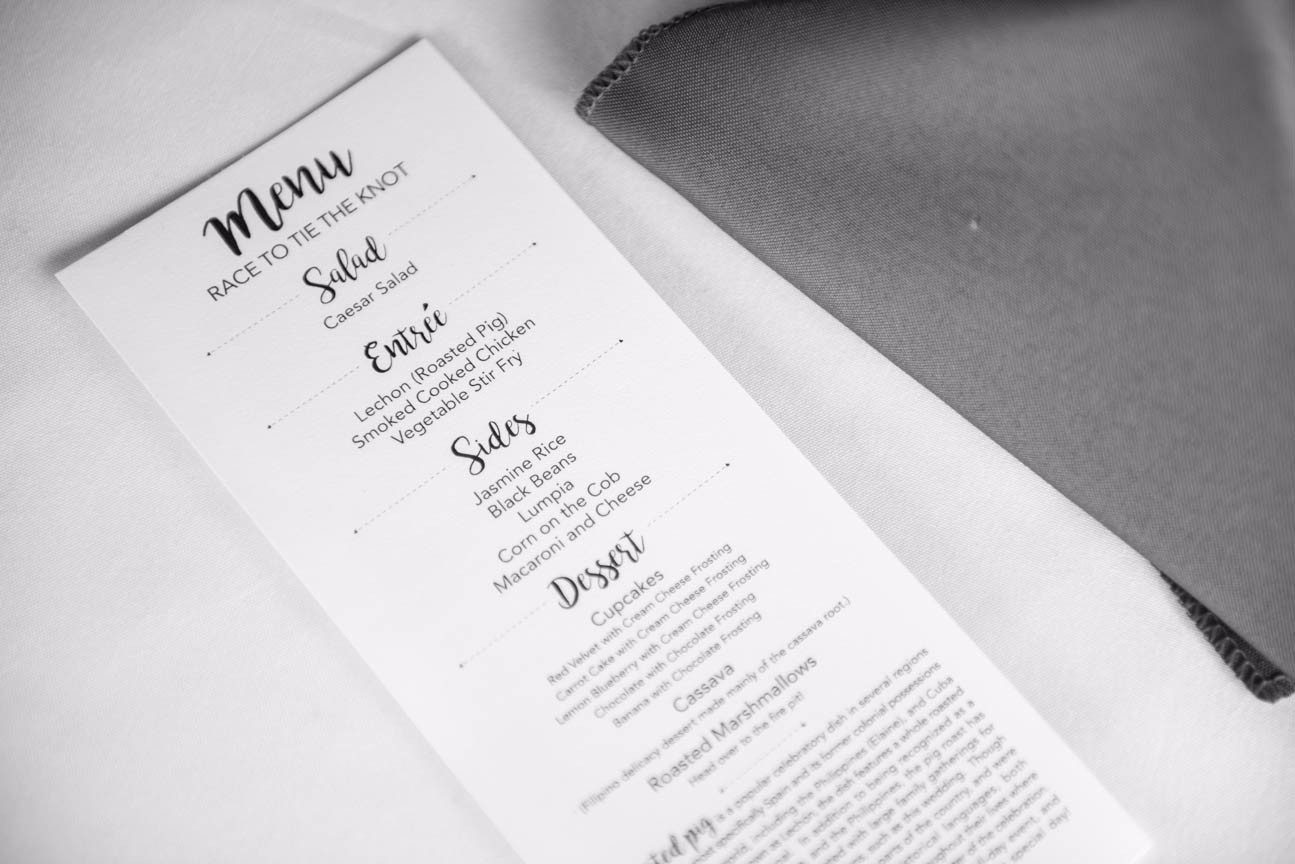 Menu
RACE TO TIE THE KNOT
Salad
Caesar Salad
Entrée
Lechon (Roasted Pig)
Smoked Cooked Chicken
Vegetable Stir Fry
Sides
Jasmine Rice
Black Beans
Lumpia
Corn on the Cob
Macaroni and Cheese
Dessert
Cupcakes
Red Velvet with Cream Cheese Frosting
Carrot Cake with Cream Cheese Frosting
Lemon Blueberry with Cream Cheese Frosting
Chocolate with Chocolate Frosting
Banana with Chocolate Frosting
Cassava
(Filipino delicacy dessert made mainly of the cassava root.)
Roasted Marshmallows
Head over to the fire pit!
pig is a popular celebratory dish in several regions
specifically Spain and its former colonial possessions
including the Philippines (Elaine), and Cuba
as Lechon, the dish features a whole roasted
In addition to being recognized as a
and the Philippines, the pig roast has
with large family gatherings for
such as this wedding. Though
parts of the country, and were
historical languages, both
throughout their lives where
of the celebration
event, and
special day!